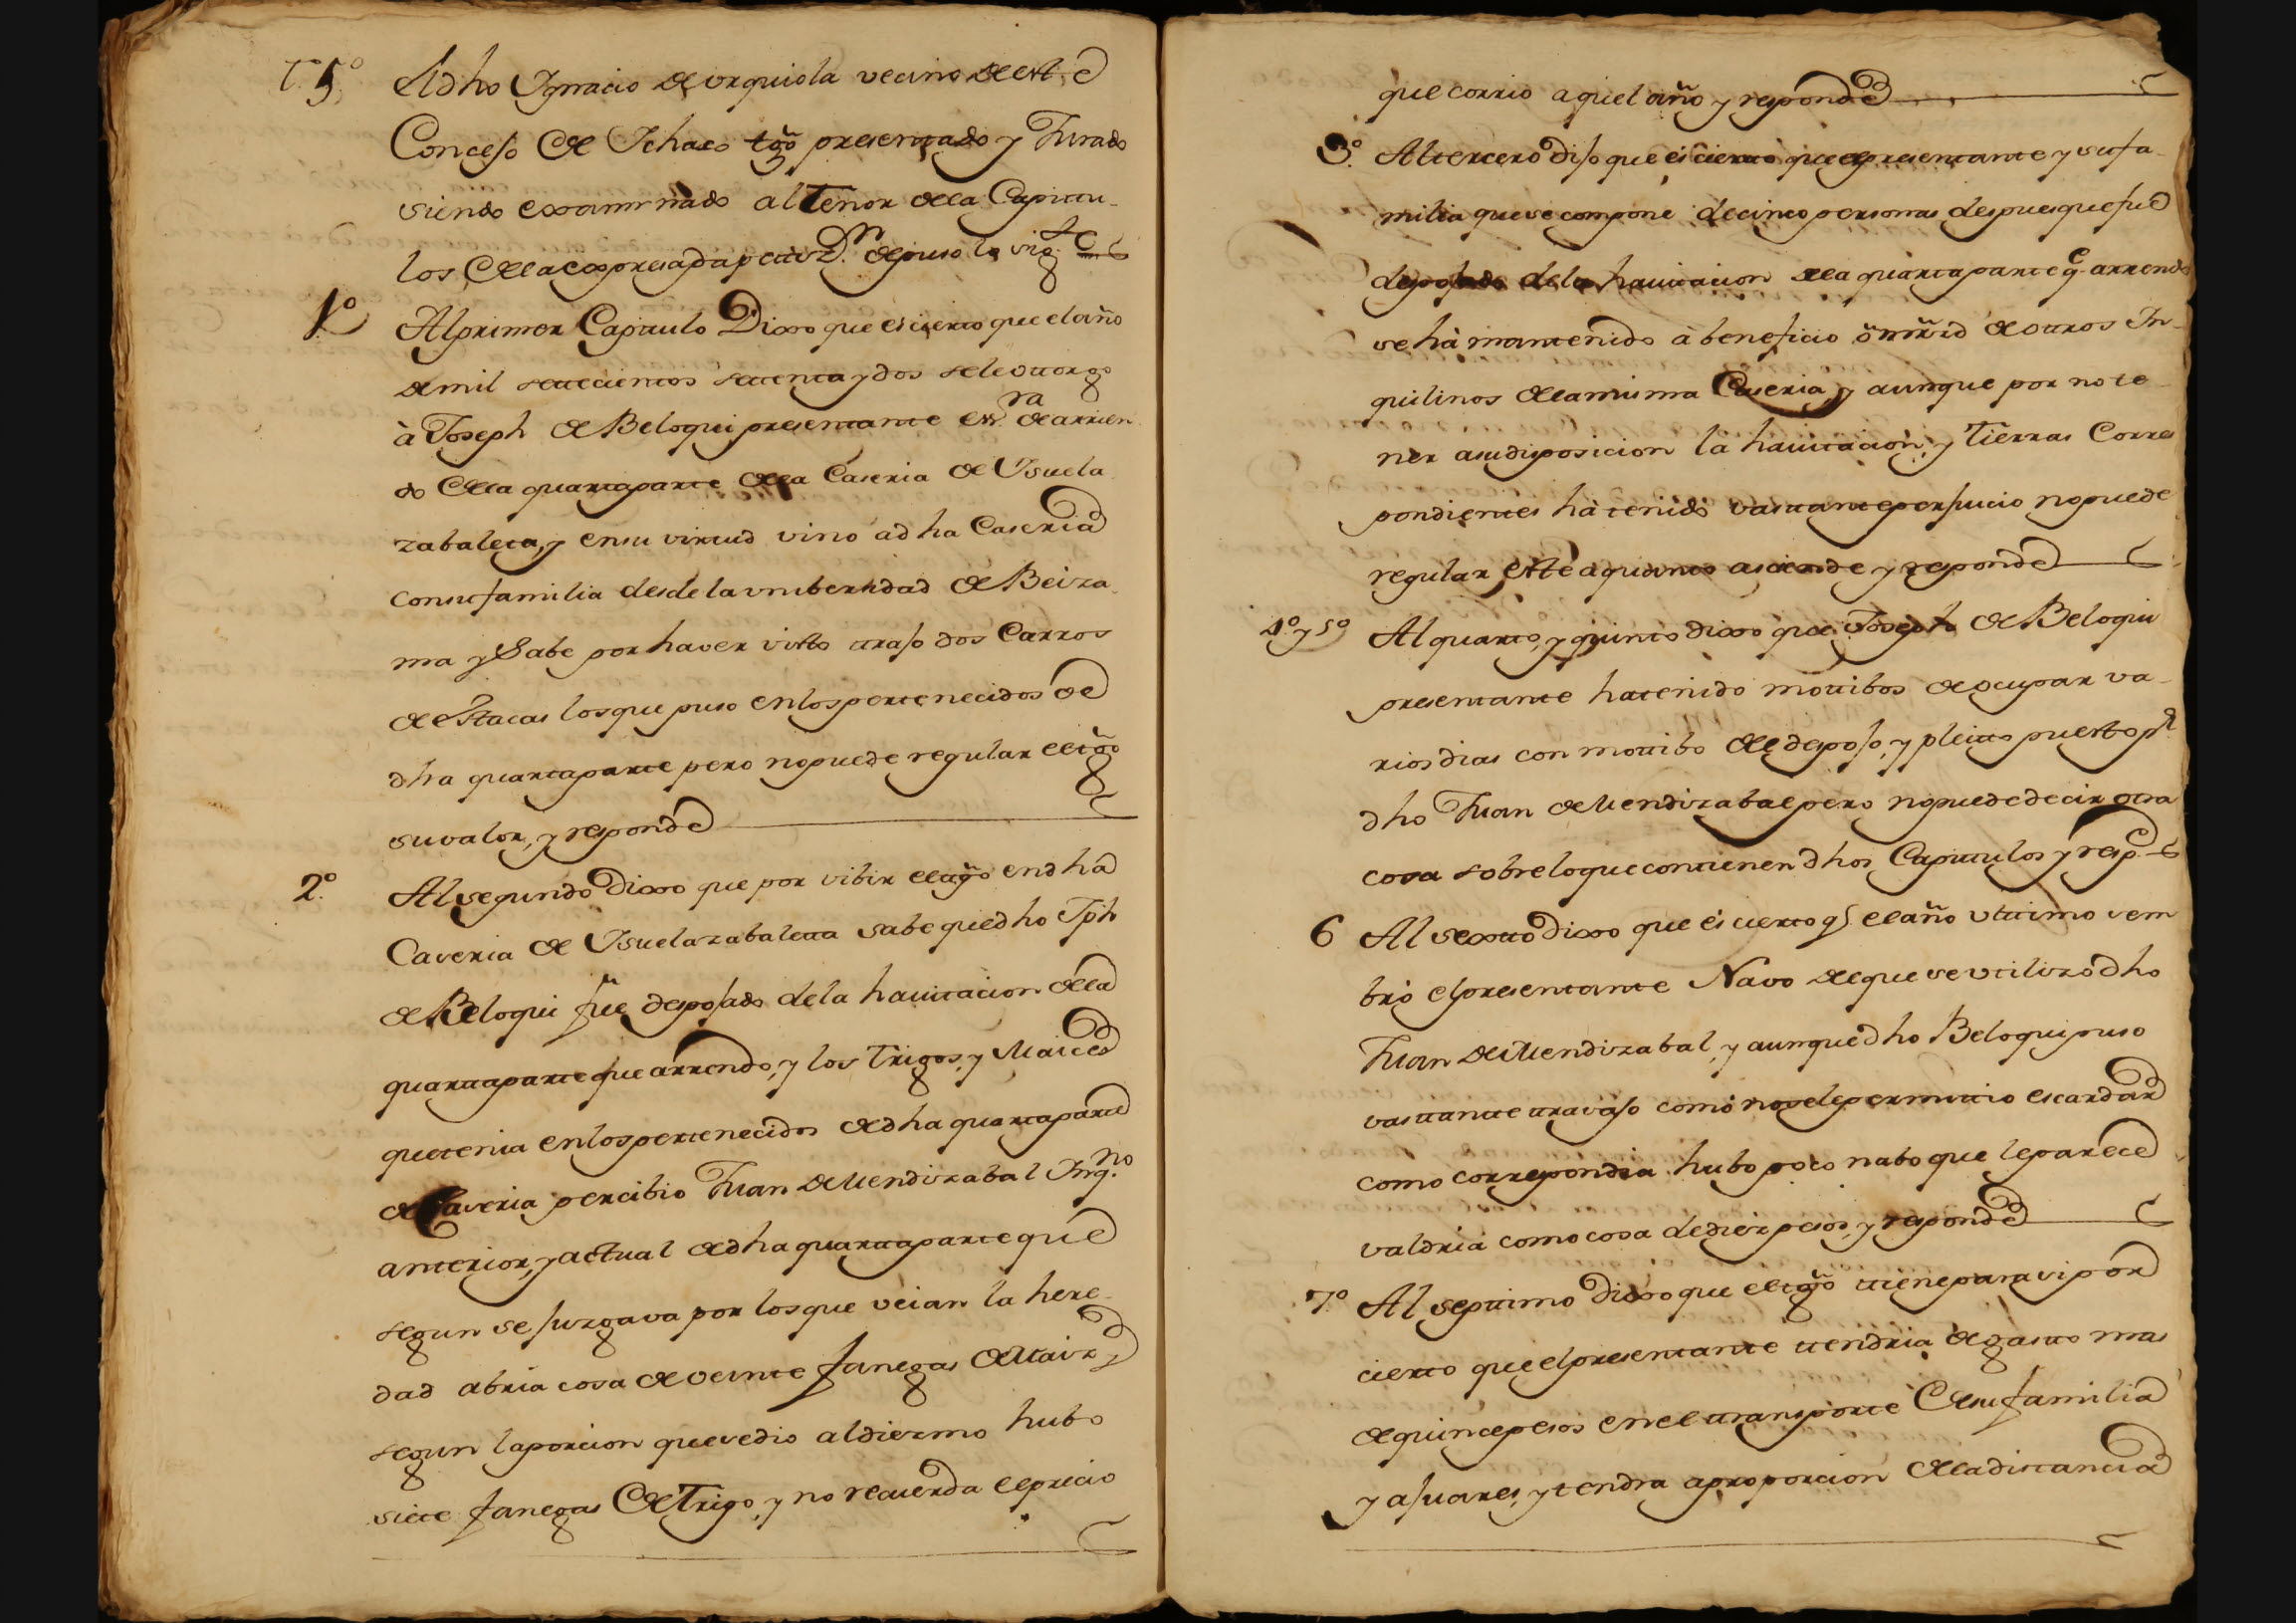 T. 5.º El dho Ygnacio de urquiola vecino de este
Concejo de Ichaso tgõ presentado y Jurado
siendo examinado al tenor de la Capitu-
los de la expresada petizn. depuso lo sigte
1º Al primer Capitulo Dixo que es cierto que el año
de mil setecientos setenta y dos se le otorgo
à Joseph de Beloqui presentante essra. de arrien
do de la quarta parte de la Caseria de Ysuela
zabaleta, y en su virtud vino à dha Caseria
con su familia desde la universidad de Beiza
ma y Sabe por haver visto trajo dos Carros
de estacas los que puso en los pertenecidos de
dha quarta parte pero no puede regular el tgõ
su valor, y responde
2º. Al segundo Dixo que por vibir el tgõ en dha
Caseria de Ysuelazabaleta sabe que dho Jph
de Beloqui fue despojado de la havitacion de la
quarta parte que arrendo, y los Trigos, y Maices
que tenia en los pertenecidos de dha quarta parte
de Caseria percibio Juan de Mendizabal Inqno.
anterior, y actual de dha quarta parte que
segun se juzgava por los que veian la here-
dad abria cosa de veinte fanegas de Maiz y
segun la porcion que se dio al diezmo hubo
siete fanegas de Trigo, y no recuerda el precio
que corrio aquel año y responde
3º. Al tercero dijo que es cierto que el presentante y su fa-
milia que se compone de cinco personas despues que fue
despojado de la havitacion de la quarta parte qe. arrendo
se hà mantenido à beneficio de otros In-
quilinos de la misma Caseria, y aunque por no te-
ner a su disposicion la havitacion, y Tierras Corres
pondientes hà tenido vastante perjuicio no puede
regular este a quanto asciende y responde
4º y 5º Al quarto, y quinto dixo que Joseph de Beloqui
presentante ha tenido motibos de ocupar va-
rios dias con motibo de el despojo, y pleito puesto pr
dho Juan de Mendizabal pero no puede decir otra
cosa sobre lo que contienen dhos Capitulos y respe.
6 Al sexto dixo que es cierto q el año ultimo sem
brò el presentante Navo de que se utilizò dho
Juan de Mendizabal, y aunque dho Beloqui puso
vastante travajo como no se le permitio escardar
como correspondia hubo poco nabo que le parece
valdria como cosa de diez pesos, y responde
7º Al septimo Dixo que el tgõ tiene para si por
cierto que el presentante tendria de gasto mas
de quince pesos en el transporte de su familia
y ajuares, y tendra a proporcion de la distancia